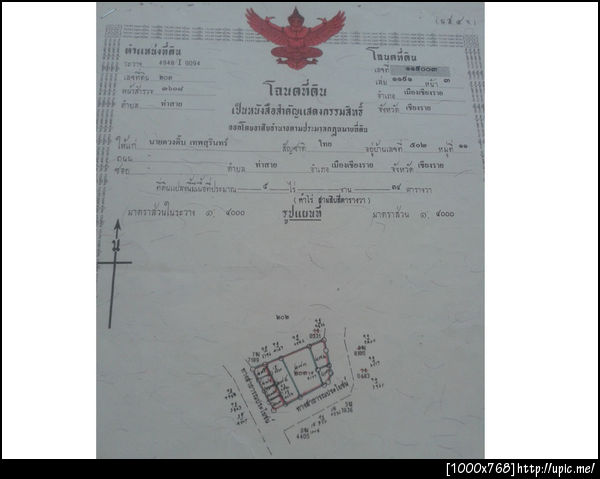 (น.ส.๔ จ.)
ตำแหน่งที่ดิน
ระวาง 4948 I 0094
เลขที่ดิน ๒๐๓
หน้าสำรวจ ๓๖๐๘
ตำบล ท่าสาย
โฉนดที่ดิน
เลขที่ ๑๑๕๐๐๓
เล่ม ๑๑๕๑ หน้า ๓
อำเภอ เมืองเชียงราย
จังหวัด เชียงราย
โฉนดที่ดิน
เป็นหนังสือสำคัญแสดงกรรมสิทธิ์
ออกโดยอาศัยอำนาจตามประมวลกฎหมายที่ดิน
ให้แก่ นายดวงดิ๊บ เทพสุรินทร์ สัญชาติ ไทย อยู่บ้านเลขที่ ๕๐๒ หมู่ที่ ๑๑
ถนน
ซอย ตำบล ท่าสาย อำเภอ เมืองเชียงราย จังหวัด เชียงราย
ที่ดินแปลงนี้มีเนื้อที่ประมาณ ๕ ไร่ งาน ๓๔ ตารางวา
มาตราส่วนในระวาง ๑: ๔๐๐๐ รูปแผนที่ มาตราส่วน ๑: ๔๐๐๐
น
๒๐๒
๒๐๓
ทางสาธารณประโยชน์
ทางสาธารณประโยชน์
[1000x768]http://upic.me/